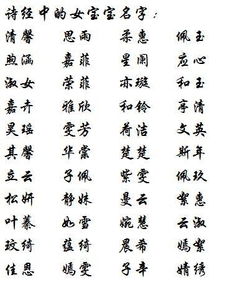 诗经中的女宝宝名字：
清馨 思雨 柔惠 佩玉
煦涵 嘉菲 星阑 应心
淑女 荣菲 亦璇 和玉
嘉卉 雅欣 和铃 享清
昊瑶 雯芳 荷洁 文英
其馨 华棠 楚楚 斯年
立云 子佩 紫雯 佩玖
松妍 静姝 曼云 絮惠
叶蓁 如雪 婉慧 云淑
玟绮 蕴绮 晨希 嫣絮
佳恩 嫣雯 子辛 婧绣